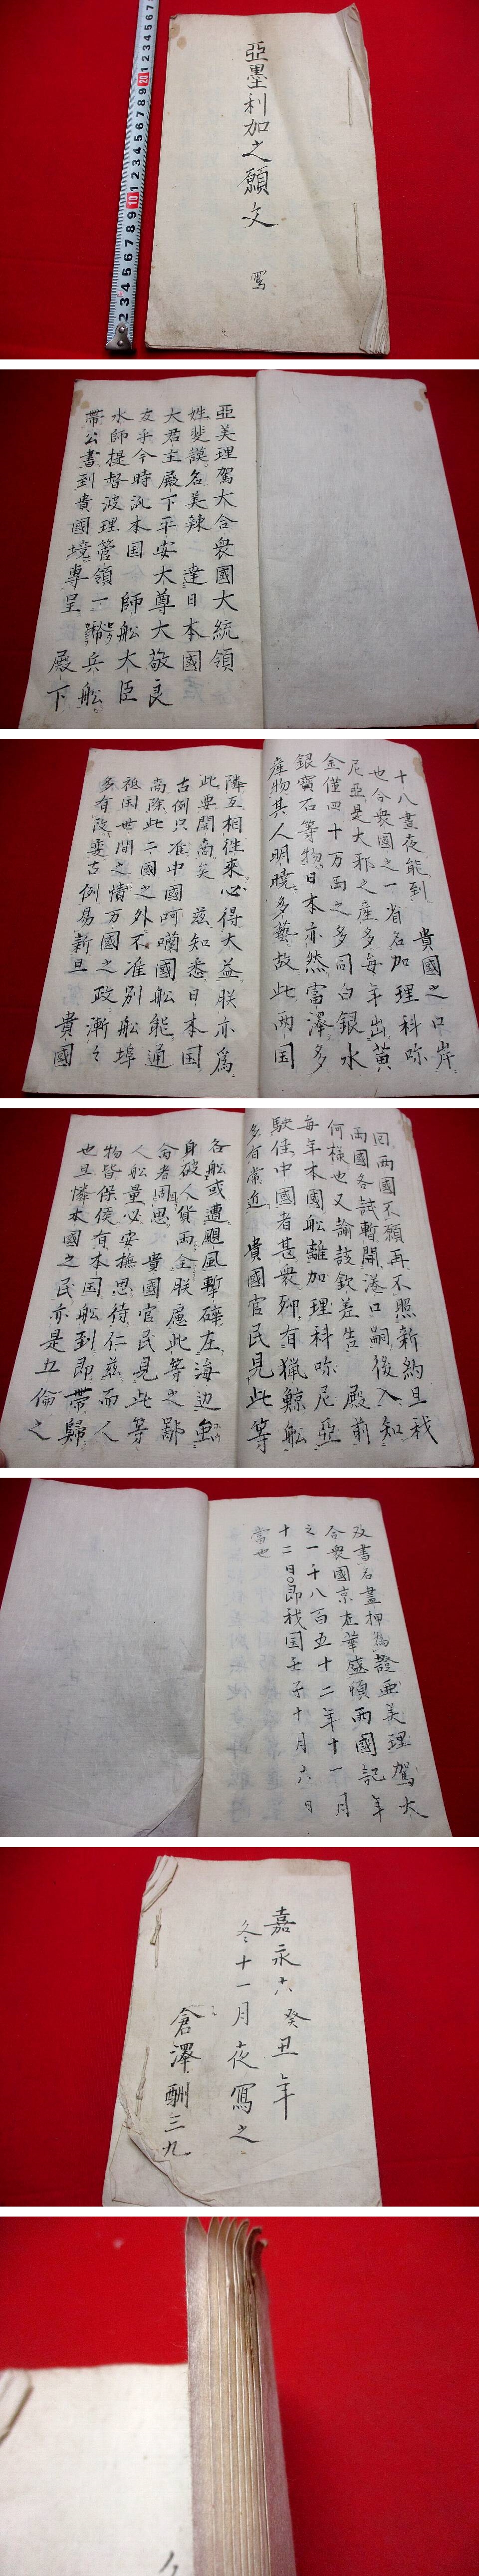 亞墨利加之願文
寫
亞美理駕大合衆國大統領
姓斐謨名美辣 達日本國
大君主殿下平安大尊大敬良
友乎今時汎本国 師船大臣
水師提督波理管領一帮兵船
帶公書到貴國境專呈 殿下
十八晝夜能到 貴國之口岸
也合衆國之一省名加理科𠰷
尼亞是大邪之産多每年出黃
金僅四十万両之多同白銀水
銀寳石等物日本亦然富澤多
産物其人明曉多藝故此两国
隣互相徃來心得大益朕亦爲
此要開啇矣 兹知悉日本国
古例只准中國呵囒國舩能通
啇除此二國之外不准別舩埠
祗国世間之情万國之政漸々
多有改变古例易新旦 貴國
囘两國不願再不照新約旦我
両國各試暫開遂口嗣後入知
何樣也又論說欽差告 殿前
每年本國舩離加理科𠰷尼亞
駛徃中國者甚衆夘有獵鯨舩
多有常近 貴國官民見此等
各舩或遭颶風暫礫在海边虽
身破人貨両全朕慮此等之鄙
斋者周思 貴國官民見此等
人舩量必安撫思待仁兹而人
物皆保俟有本国舩到即帶歸
也旦憐本國之民亦是五倫之
及書名畫押為證亞美理駕大
合衆國京在華盛頓两國記年
之一千八百五十二年十一月
十二日即我国壬子十月六日
當也
嘉永六癸丑年
冬十一月夜寫之
倉澤酬三九